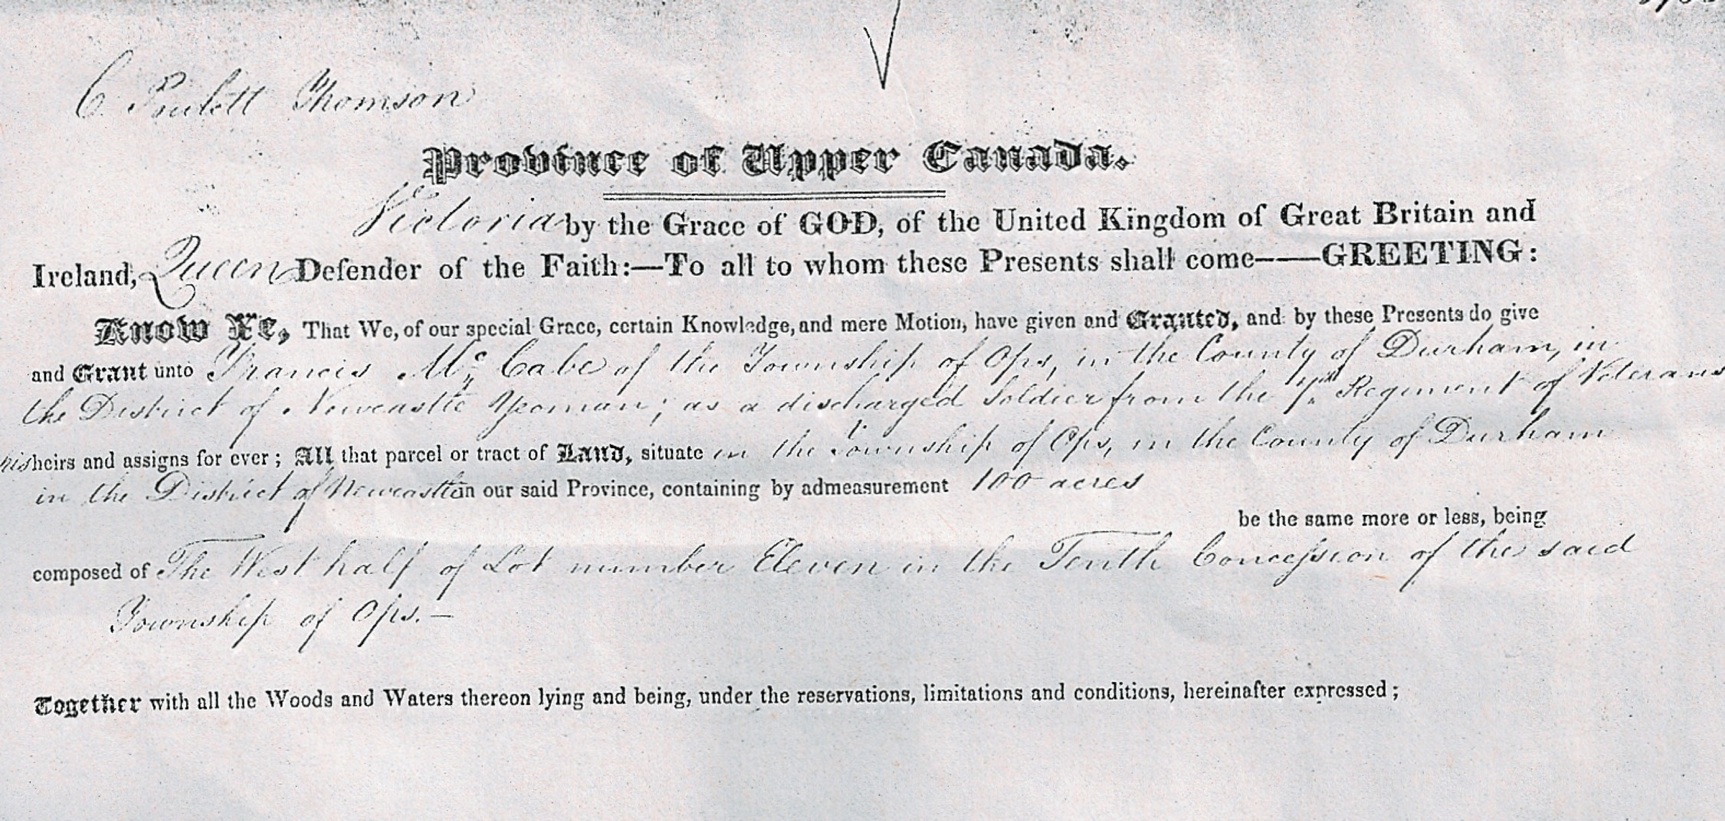 C Poulett Thomson
Province of Upper Canada.
Victoria by the Grace of GOD, of the United Kingdom of Great Britain and
Ireland, Queen Defender of the Faith:—To all to whom these Presents shall come——GREETING:
Know Ye, That We, of our special Grace, certain Knowledge, and mere Motion, have given and Granted, and by these Presents do give
and Grant unto Francis Mc Cabe of the Township of Ops, in the County of Durham, in
the District of Newcastle Yeoman; as a discharged Soldier from the Regiment of Veterans
his heirs and assigns for ever; All that parcel or tract of Land, situate in the Township of Ops, in the County of Durham
in the District of Newcastle in our said Province, containing by admeasurement 100 acres
be the same more or less, being
composed of The West half of Lot number Eleven in the Tenth Concession of the said
Township of Ops.—
Together with all the Woods and Waters thereon lying and being, under the reservations, limitations and conditions, hereinafter expressed;